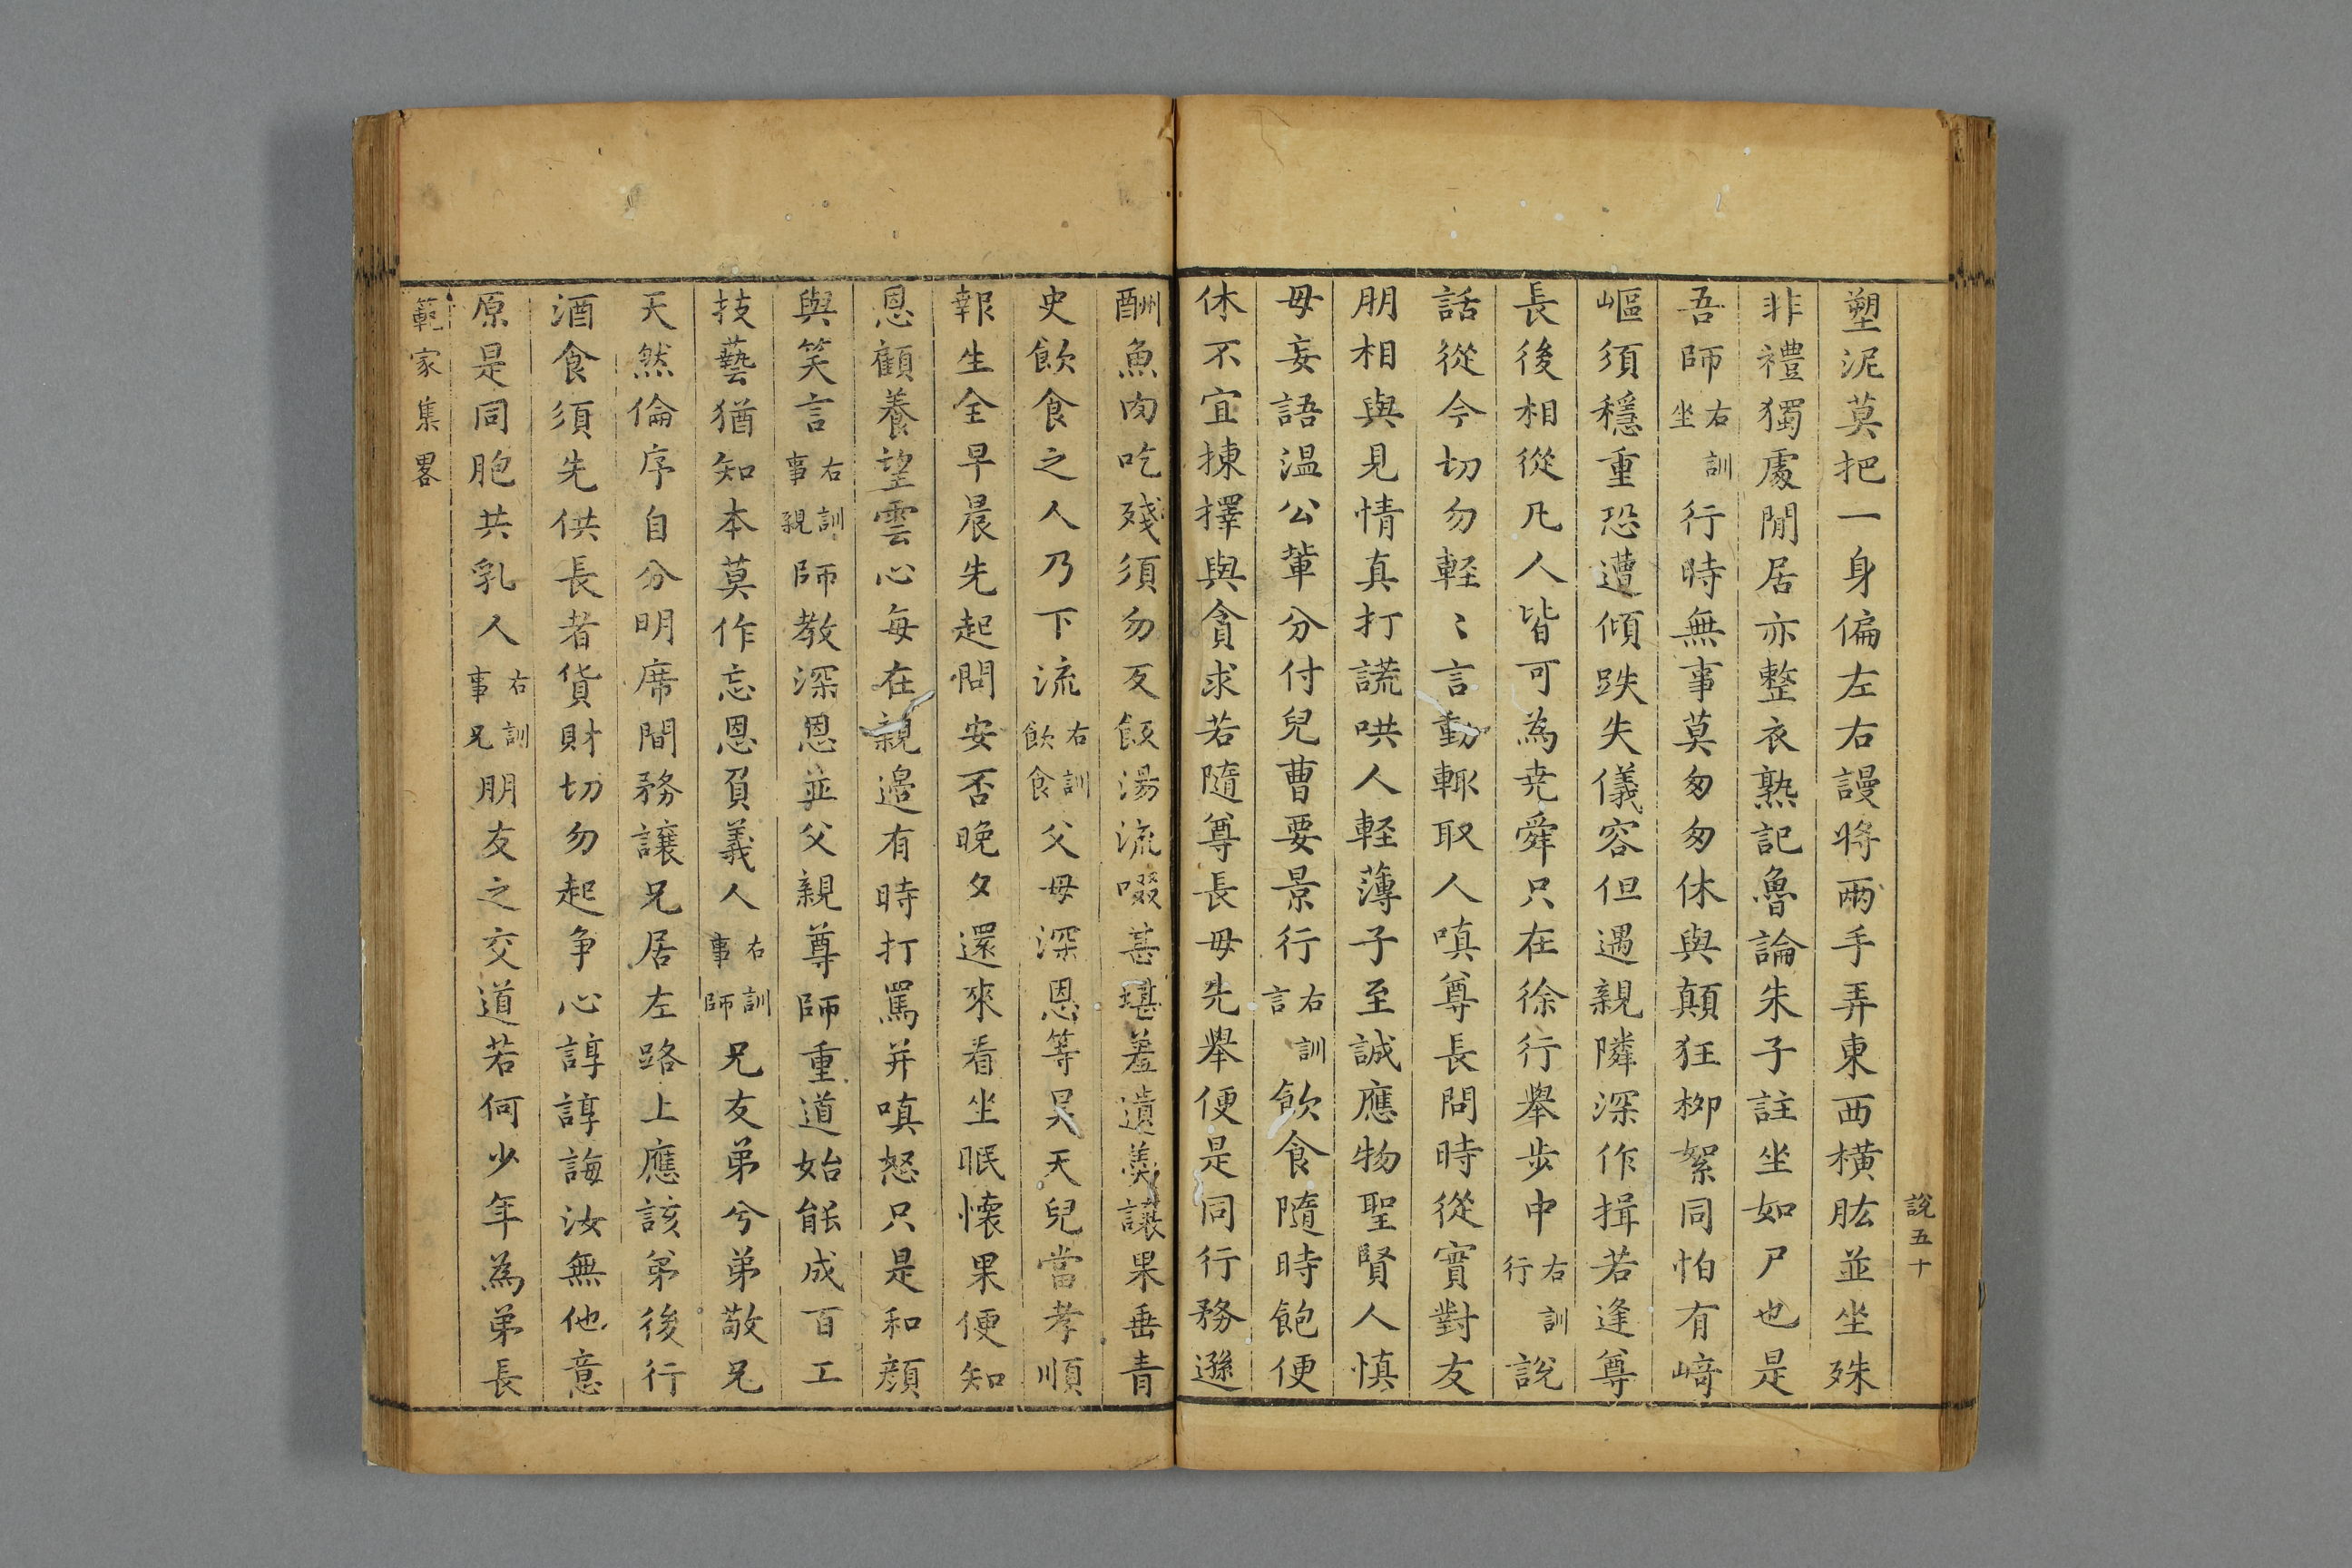 說五十
塑泥莫把一身偏左右謾將兩手弄東西橫肱並坐殊
非禮獨處閒居亦整衣熟記魯論朱子註坐如尸也是
吾師右訓坐行時無事莫匆匆休與顛狂柳絮同怕有﨑
嶇須穩重恐遭傾跌失儀容但遇親隣深作揖若逢尊
長後相從凡人皆可為堯舜只在徐行舉步中右訓行說
話從今切勿輕〻言動輒取人嗔尊長問時從實對友
朋相與見情真打謊哄人輕薄子至誠應物聖賢人慎
毋妄語溫公輩分付兒曹要景行右訓言飲食隨時飽便
休不宜揀擇與貪求若隨尊長毋先舉便是同行務遜
酬魚肉吃殘須勿反飯湯流啜甚堪羞遺羮讓果垂青
史飲食之人乃下流右訓飲食父母深恩等昊天兒當孝順
報生全早晨先起問安否晚夕還來看坐眠懷果便知
恩顧養望雲心每在親邉有時打罵并嗔怒只是和顏
與笑言右訓事親師教深恩並父親尊師重道始能成百工
技藝猶知本莫作忘恩負義人右訓事師兄友弟兮弟敬兄
天然倫序自分明席間務讓兄居左路上應該弟後行
酒食須先供長者貨財切勿起爭心諄諄誨汝無他意
原是同胞共乳人右訓事兄朋友之交道若何少年為弟長
範家集畧